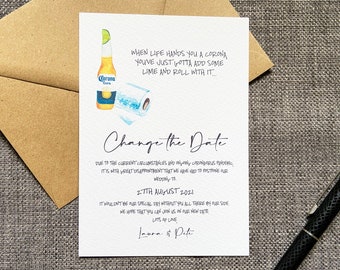 WHEN LIFE HANDS YOU A CORONA,
YOU'VE JUST GOTTA ADD SOME
LIME AND ROLL WITH IT...
Corona
Change the Date
DUE TO THE CURRENT CIRCUMSTANCES AND ONGOING CORONAVIRUS PANDEMIC,
IT IS WITH GREAT DISAPPOINTMENT THAT WE HAVE HAD TO POSTPONE OUR
WEDDING TO...
27TH AUGUST 2021
IT WOULDN'T BE OUR SPECIAL DAY WITHOUT YOU ALL THERE BY OUR SIDE.
WE HOPE THAT YOU CAN JOIN US ON OUR NEW DATE.
LOTS OF LOVE
Laura & Pete